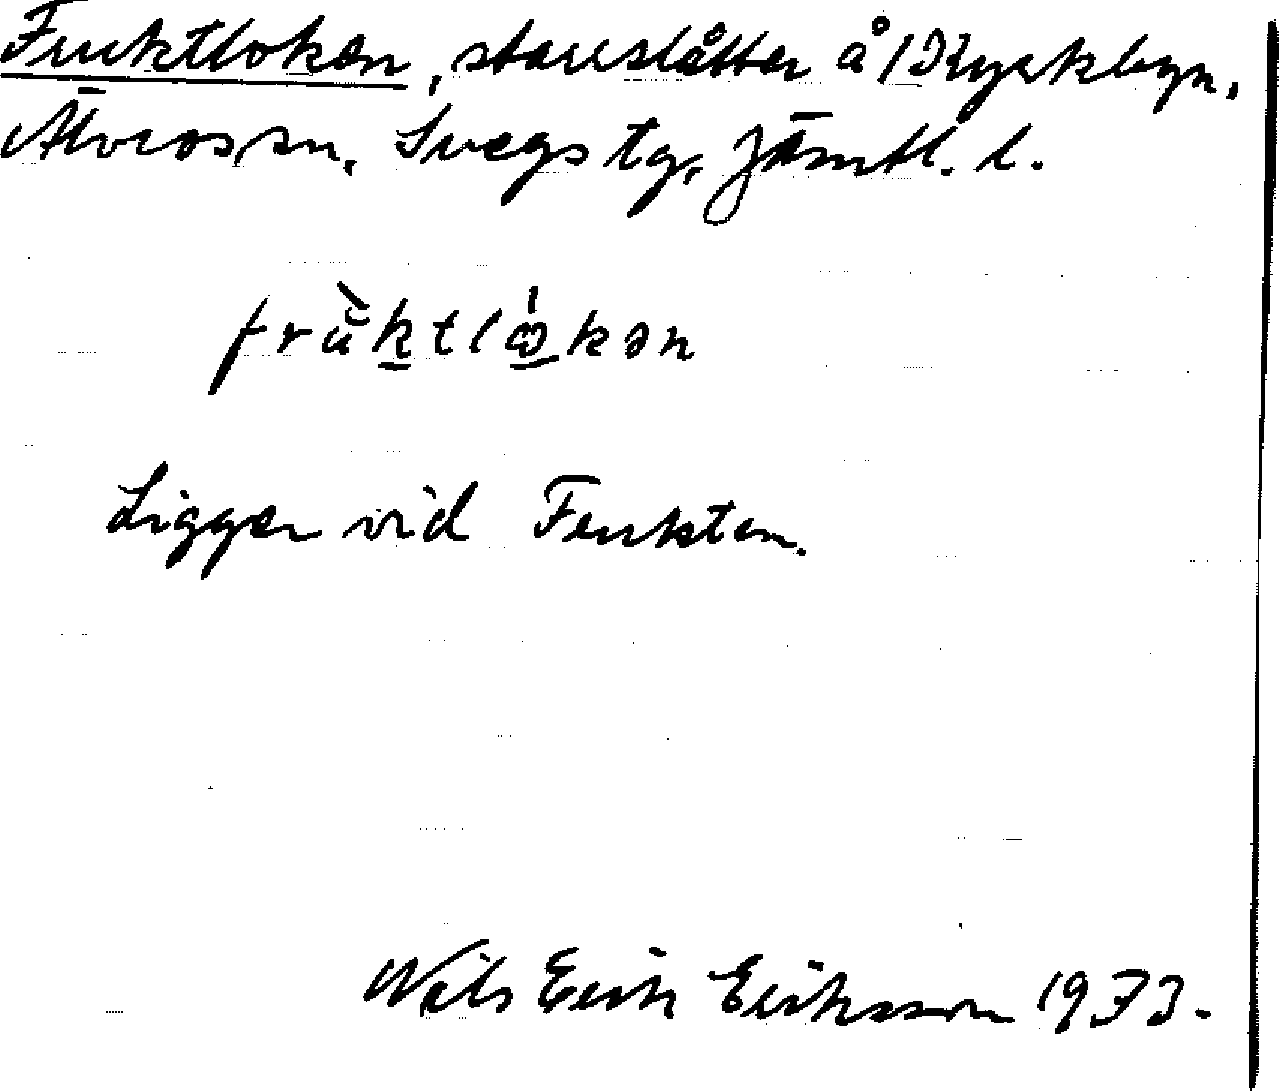 Fruktloken, starrslåtter å Kyrkbyn,
Älvros sn. Svegs tg, Jämtl. l.
frŭ̀ktlώ̲kən
Ligger vid Frukten.
Nils Erik Eriksson 1933.